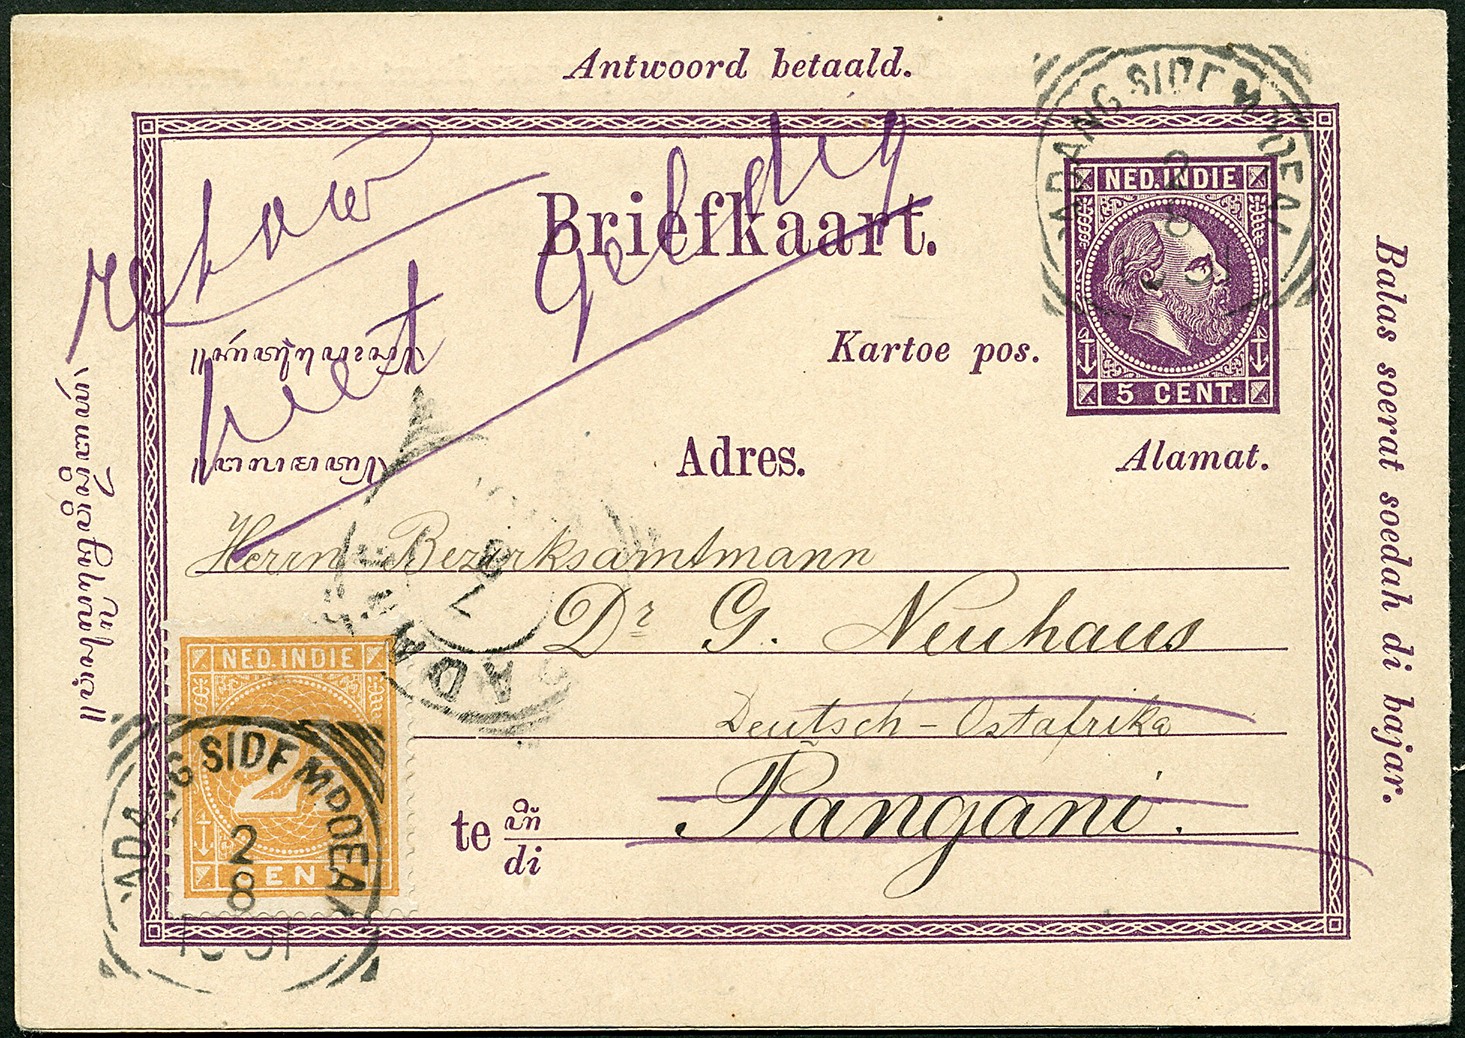 Antwoord betaald.
Briefkaart.
retour
niet geldig
NED. INDIE
5 CENT.
Kartoe pos.
Adres.
Alamat.
Herrn Bezirksamtmann
Dr G. Neuhaus
Deutsch-Ostafrika
te
di
Pangani.
Balas soerat soedah di bajar.
NED. INDIE
2
CENT
ADANG SIDEMPOEAN
2
8
PADANG SIDEMPOEAN
2
8
PADANG
7
8